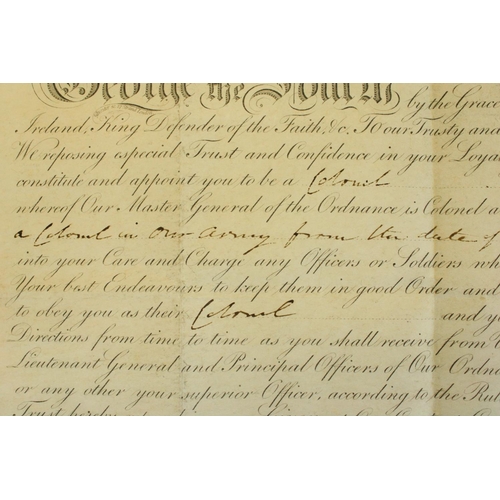 George the Fourth by the Grace
Ireland, King Defender of the Faith, &c. To our Trusty and
We reposing especial Trust and Confidence in your Loya
constitute and appoint you to be a Colonel
whereof Our Master General of the Ordnance is Colonel a
a Colonel in Our Army from the date of
into your Care and Charge any Officers or Soldiers wh
Your best Endeavours to keep them in good Order and
to obey you as their Colonel and y
Directions from time to time as you shall receive from U
Lieutenant General and Principal Officers of Our Ordn
or any other your superior Officer, according to the Rul
Trust hereby